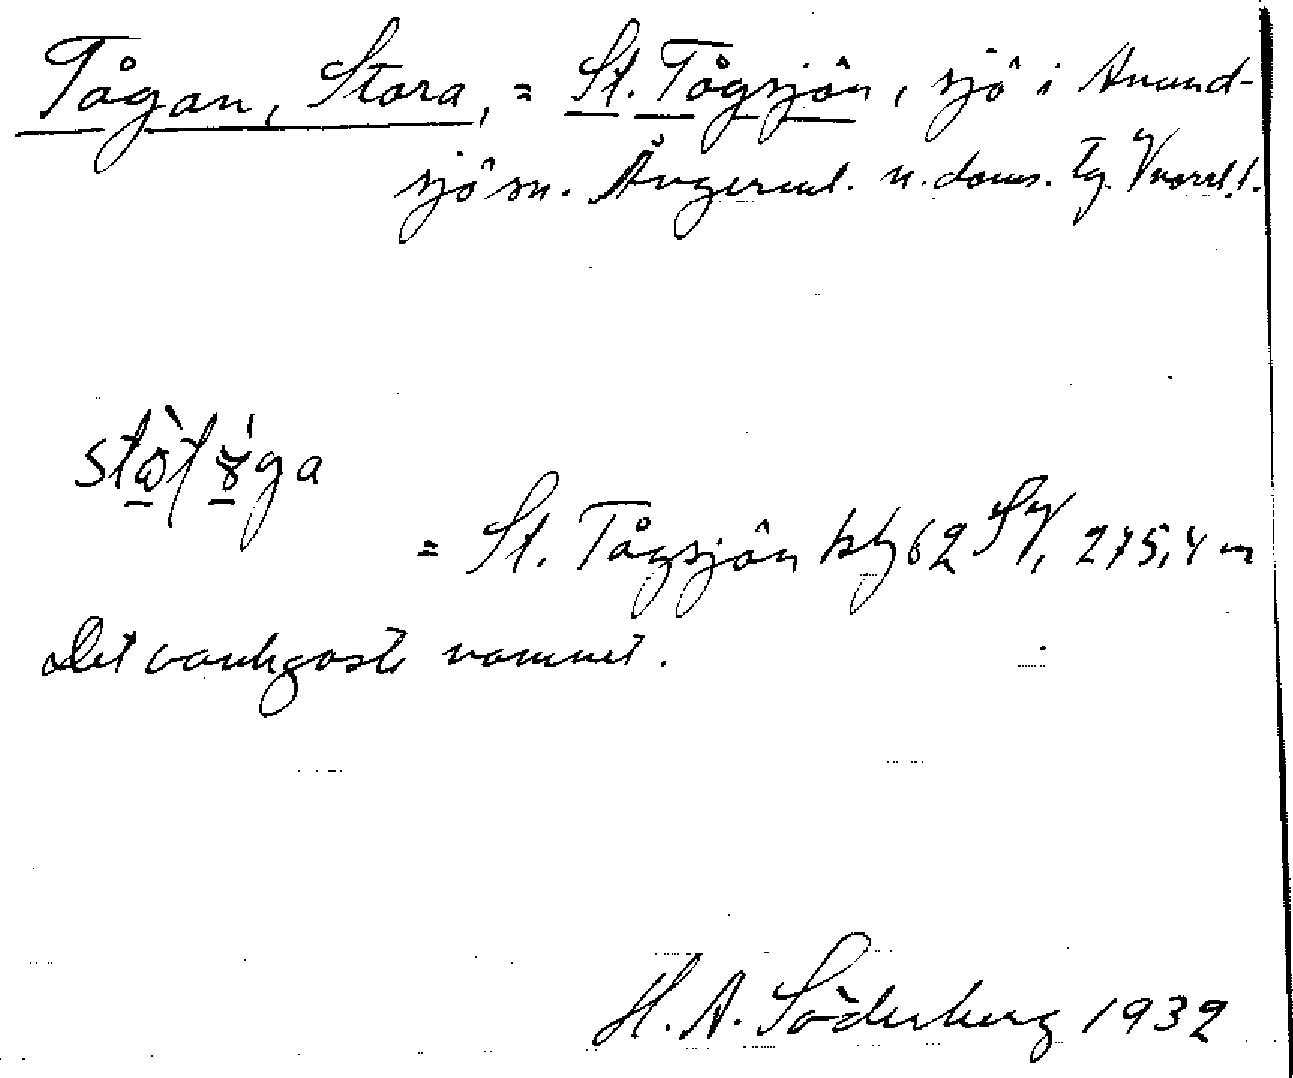 Tågan, Stora, = St. Tågsjön, sjö i Anund-
sjö sn. Ångerml. n. doms. tg. Vnorrl. l.
= St. Tågsjön kbl 62 SV, 275,4 m
Det vanligaste namnet.
H. A. Söderberg 1932